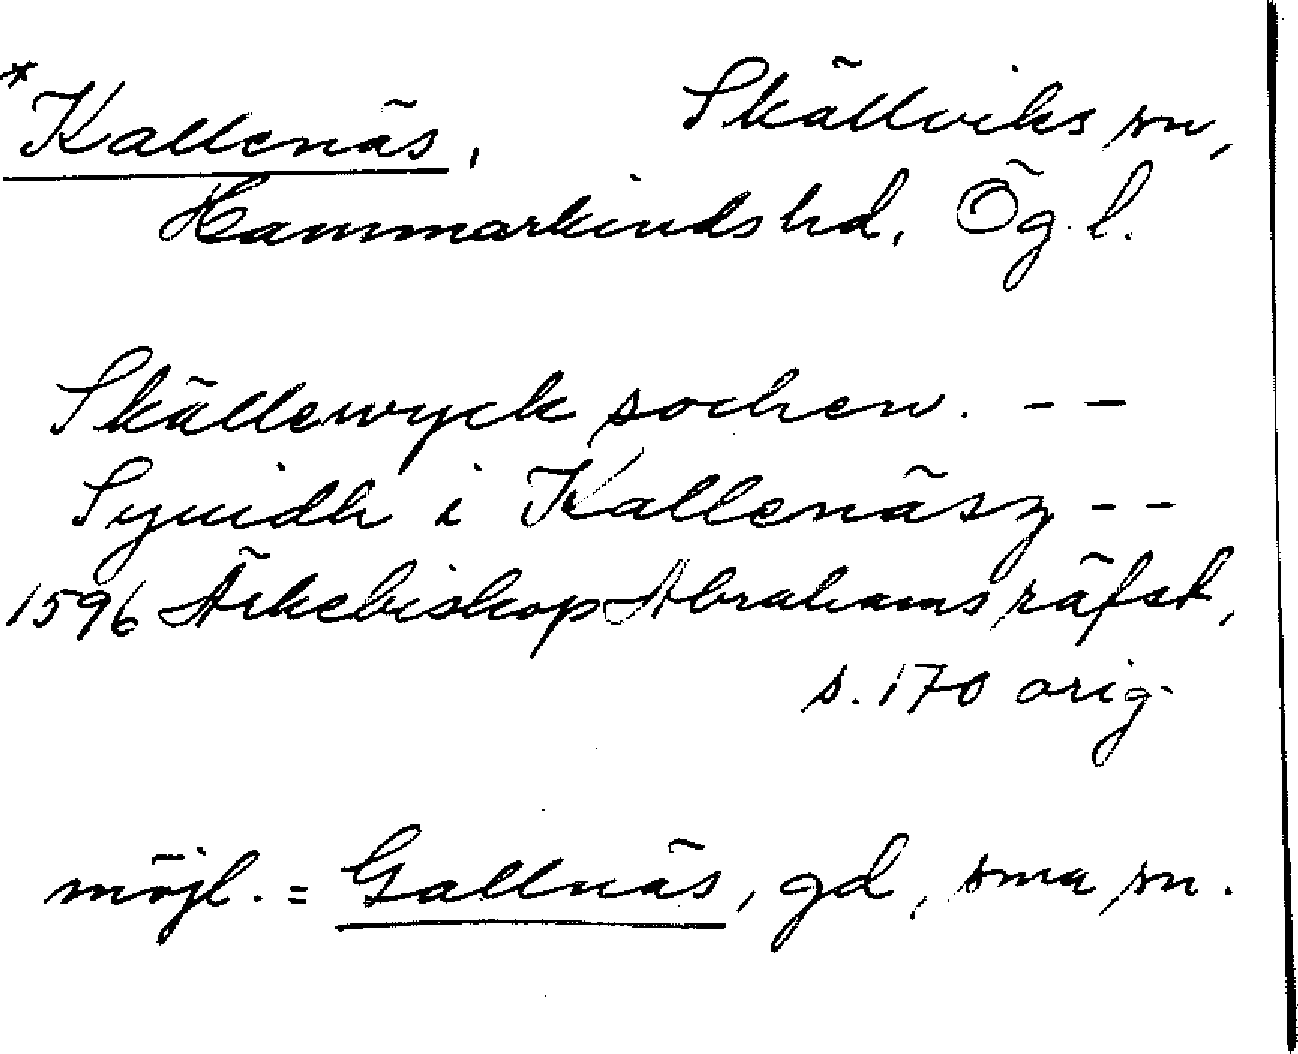 *Kallenäs. Skällviks sn,
Hammarkinds hd, Ög.l.
Skällewyck sochen. --
Syuidh i Kallenäsz --
1596 Ärkebiskop Abrahams räfst,
s. 170 orig.
möjl. = Gallnäs, gd, sma sn.